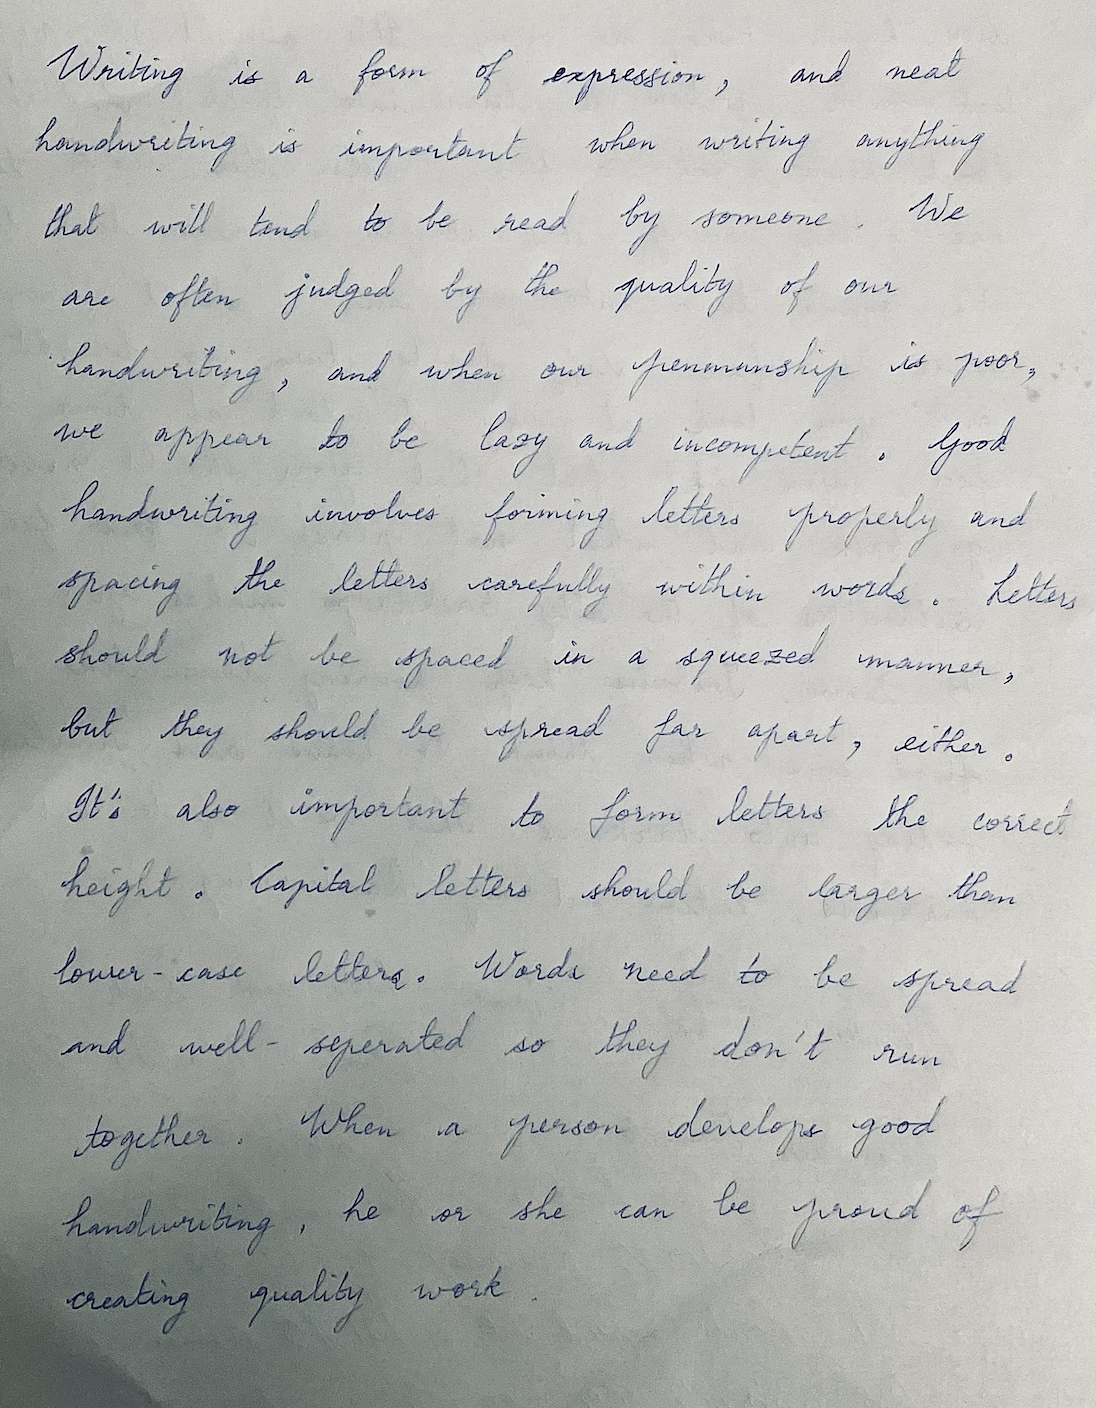 Writing is a form of expression, and neat
handwriting is important when writing anything
that will tend to be read by someone. We
are often judged by the quality of our
handwriting, and when our penmanship is poor,
we appear to be lazy and incompetent. Good
handwriting involves forming letters properly and
spacing the letters carefully within words. Letters
should not be spaced in a squeezed manner,
but they should be spread far apart, either.
It's also important to form letters the correct
height. Capital letters should be larger than
lower-case letters. Words need to be spread
and well-seperated so they don't run
together. When a person develops good
handwriting, he or she can be proud of
creating quality work.